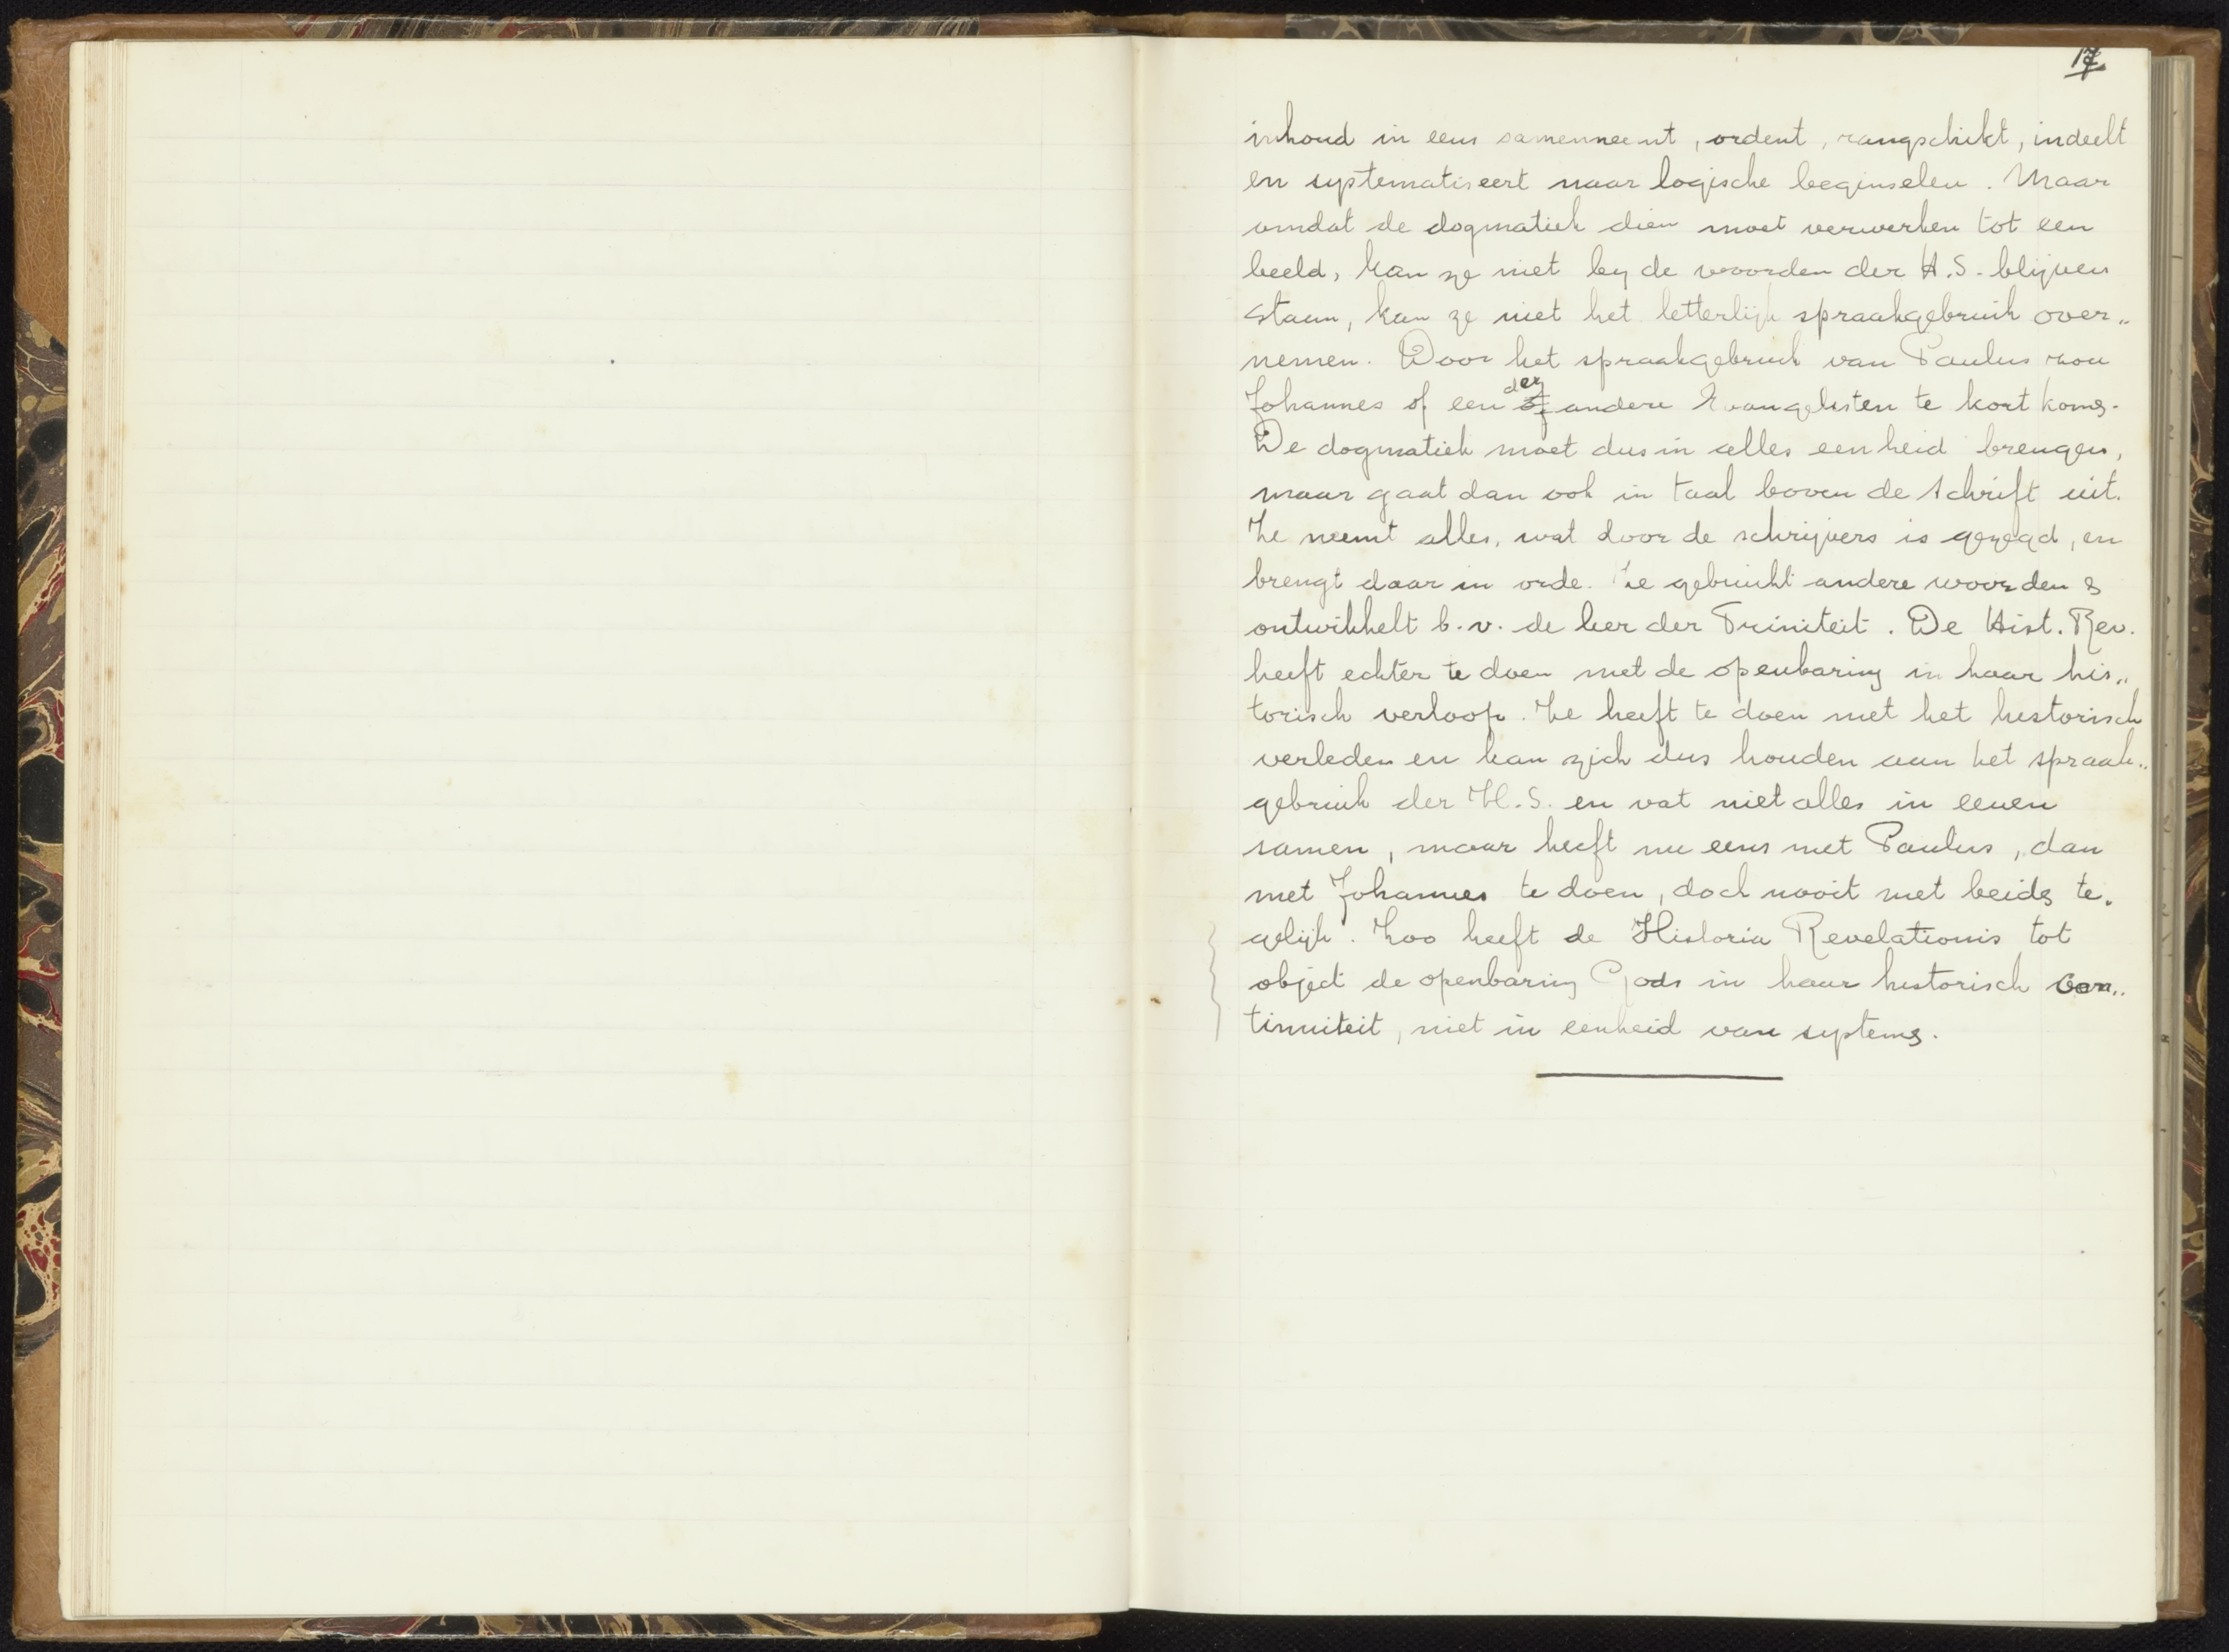 17
inhoud in eens samenneemt, ordent, rangschikt, indeelt
en systematiseert naar logische beginselen. Maar
omdat de dogmatiek dien moet verwerken tot een
beeld, kan ze niet by de woorden der H.S. blijven
staan, kan ze niet het letterlijk spraakgebruik over„
nemen. Door het spraakgebruik van Paulus zou
Johannes of een der andere Evangelisten te kort kome.
De dogmatiek moet dus in alles eenheid brengen,
maar gaat dan ook in taal boven de Schrift uit.
Ze neemt alles, wat door de schrijvers is gezegd, en
brengt daar in orde. Ze gebruikt andere woorden &
ontwikkelt b.v. de leer der Triniteit. De Hist. Rev.
heeft echter te doen met de openbaring in haar his„
torisch verloop. Ze heeft te doen met het historisch
verleden en kan zich dus houden aan het spraak„
gebruik der H.S. en vat niet alles in eenen
samen, maar heeft nu eens met Paulus, dan
met Johannes te doen, doch nooit met beide te„
gelijk. Zoo heeft de Historia Revelationis tot
object de openbaring Gods in haar historisch con„
tinuiteit, niet in eenheid van systeme.